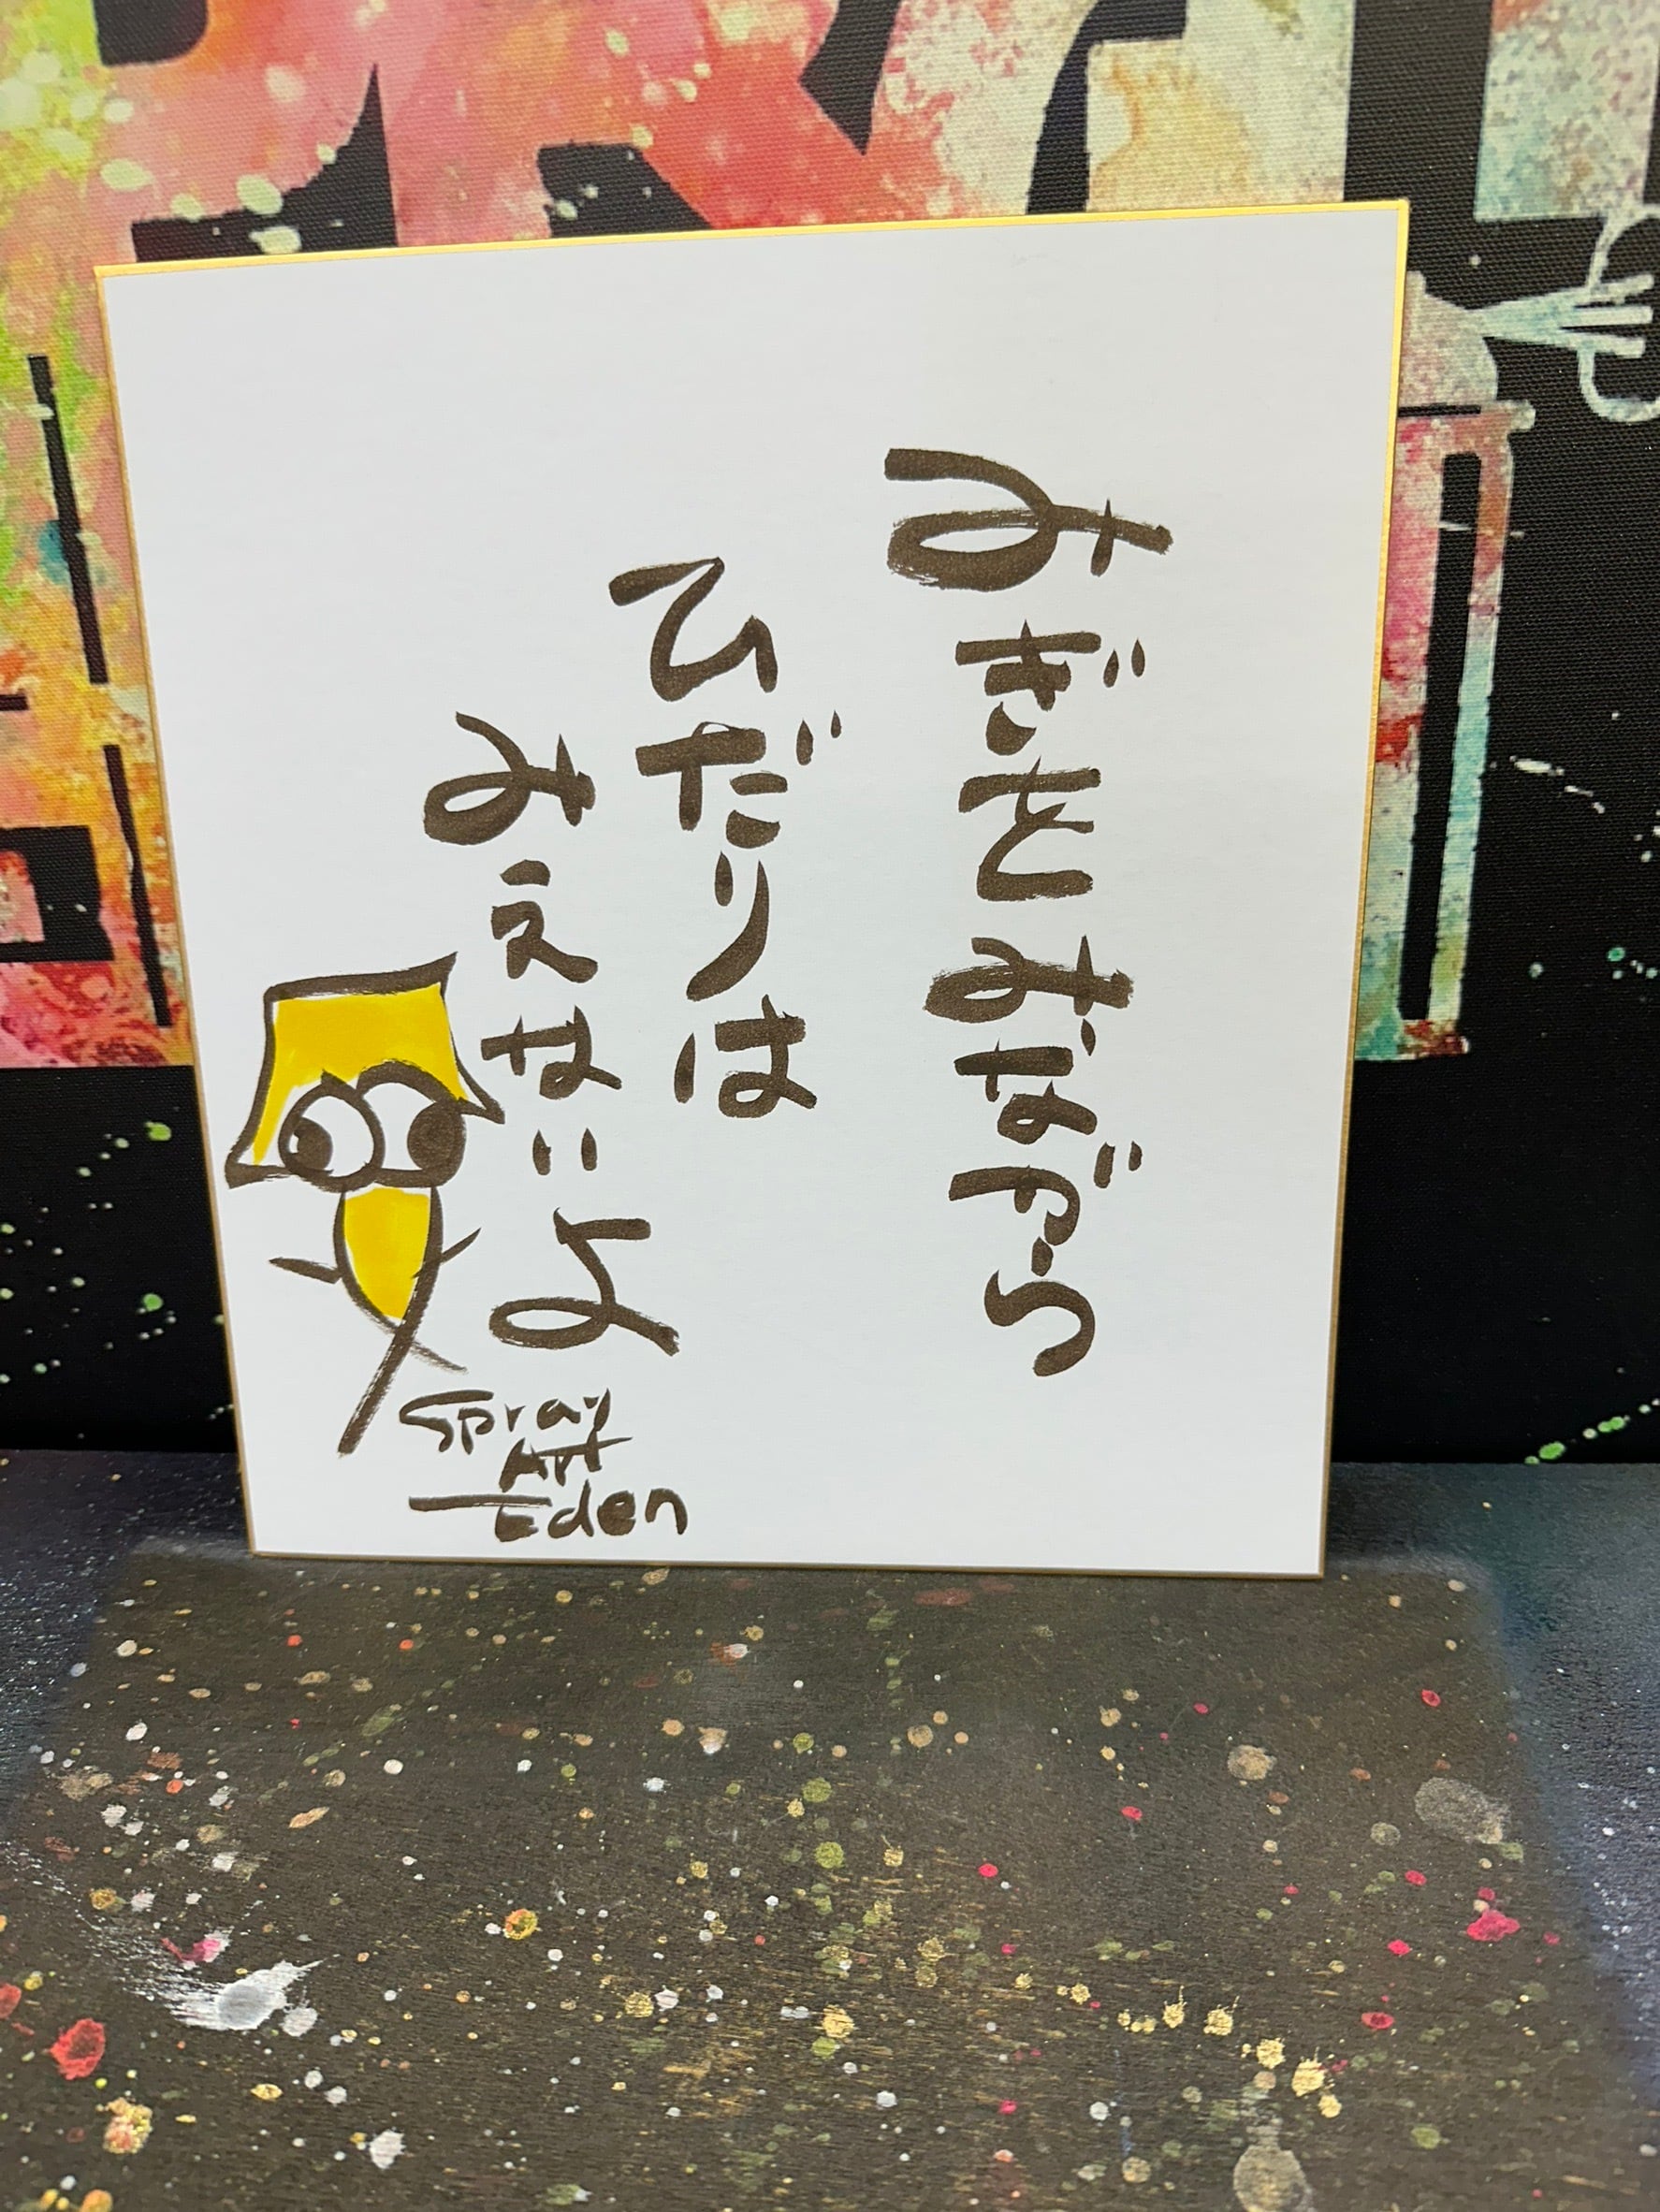 みぎをみながら
ひだりは
みえないよ
Spray
Art
Eden